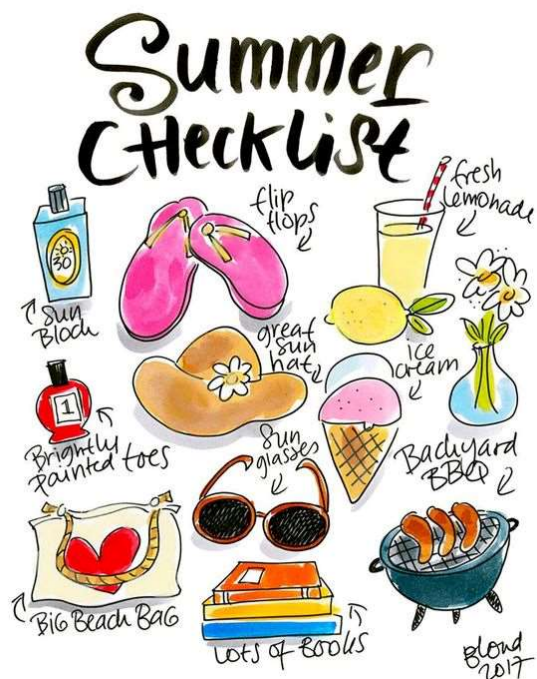 Summer
Checklist
flip
flops
fresh
lemonade
30
Sun
Block
great
sun
hat
ice
cream
1
Brightly
painted toes
Sun
glasses
Backyard
BBQ
BiG Beach BAG
Lots of Books
Blond
2017